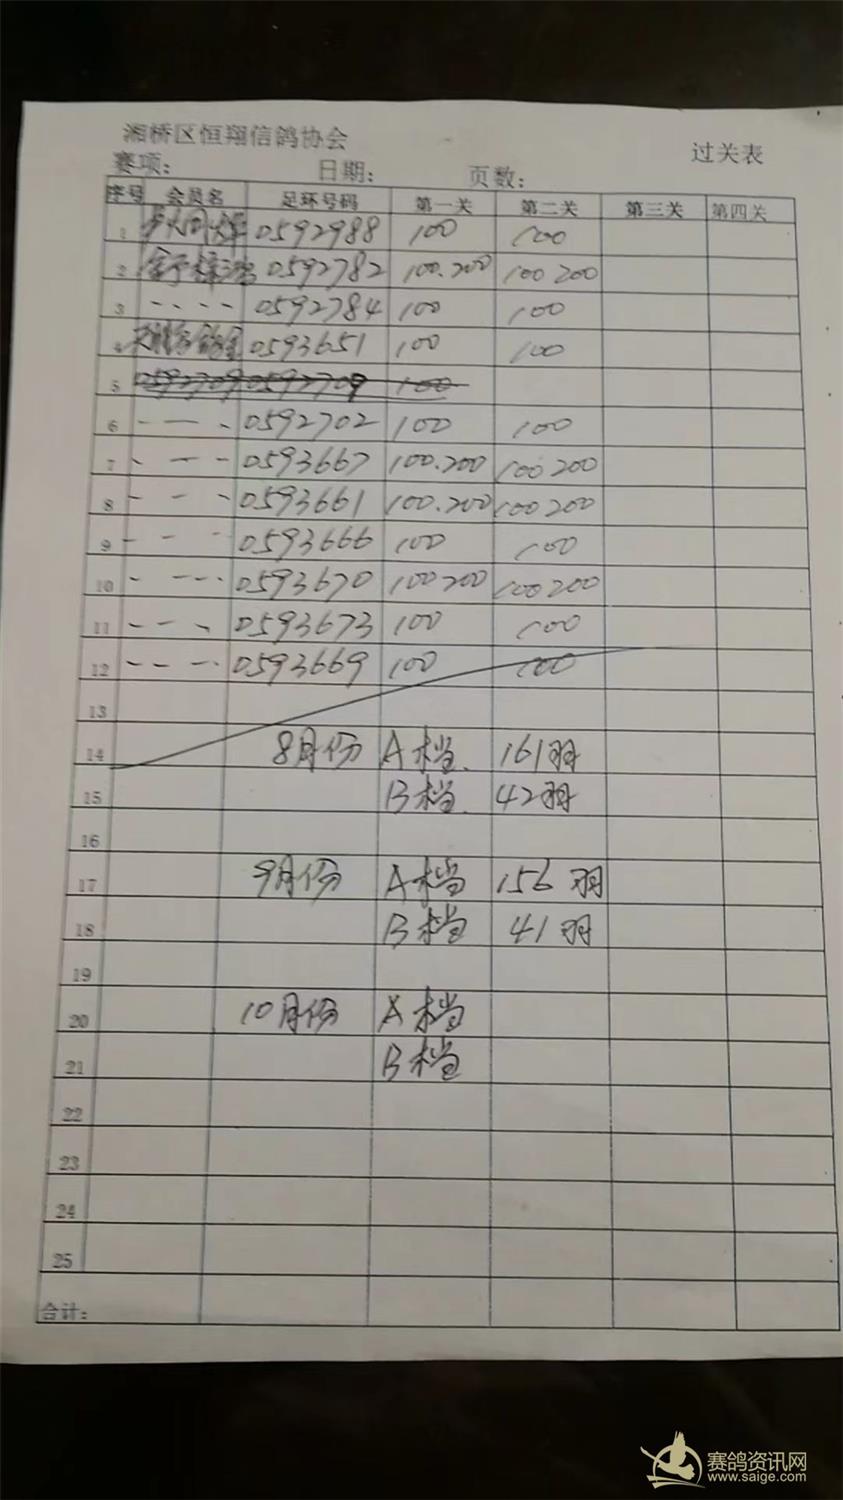 湘桥区恒翔信鸽协会
过关表
赛项: 日期: 页数:
序号 会员名 足环号码 第一关 第二关 第三关 第四关
1 0592988 100 100
2 0592782 100.200 100 200
3 - - - - 0592784 100 100
4 0593651 100 100
5 0592709 0592709 100
6 - - - 0592702 100 100
7 - - - 0593667 100.200 100 200
8 - - - 0593661 100.200 100 200
9 - - - 0593666 100 100
10 - - - - 0593670 100 200 100 200
11 - - - 0593673 100 100
12 - - - - 0593669 100 100
13
14 8月份 A档. 161羽
15 B档. 42羽
16
17 9月份 A档 156羽
18 B档 41羽
19
20 10月份 A档
21 B档
22
23
24
25
合计:
赛鸽资讯网
www.saige.com